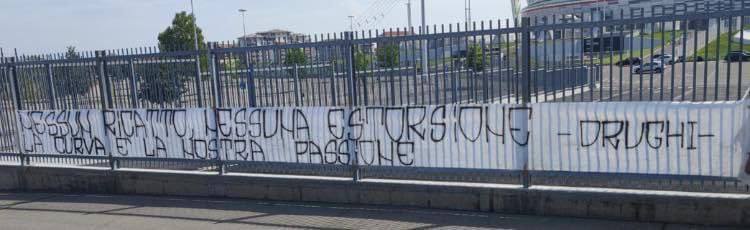 NESSUN RICATTO, NESSUNA ESTORSIONE
LA CURVA È LA NOSTRA PASSIONE
-DRUGHI-